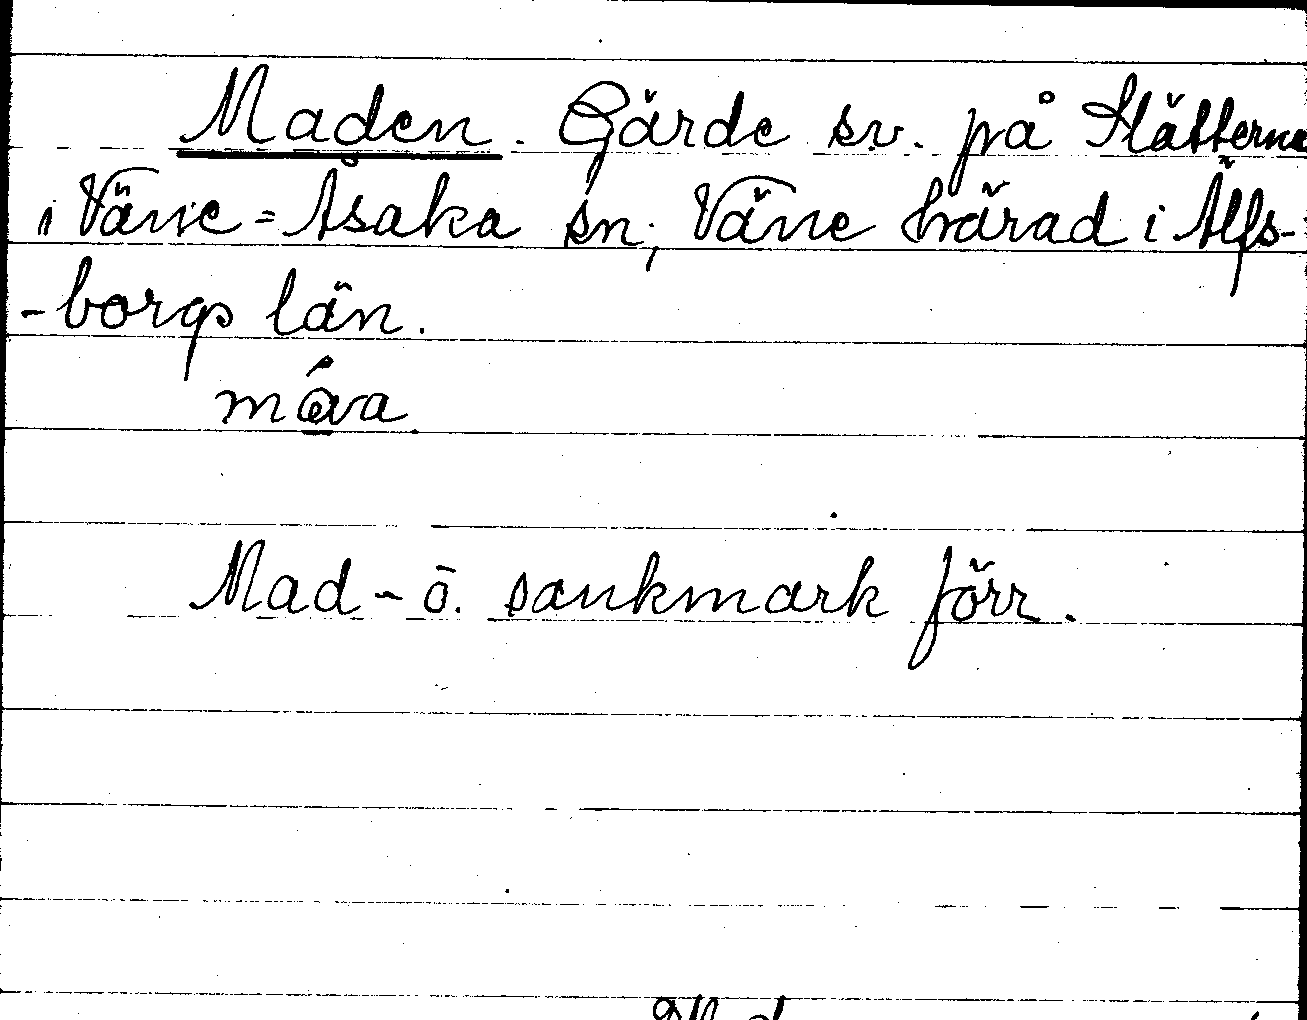 Maden. Gärde sv. på Slätterna
i Väne=Åsaka sn, Väne härad i Älfs-
-borgs län.
Mad- o. sankmark förr.